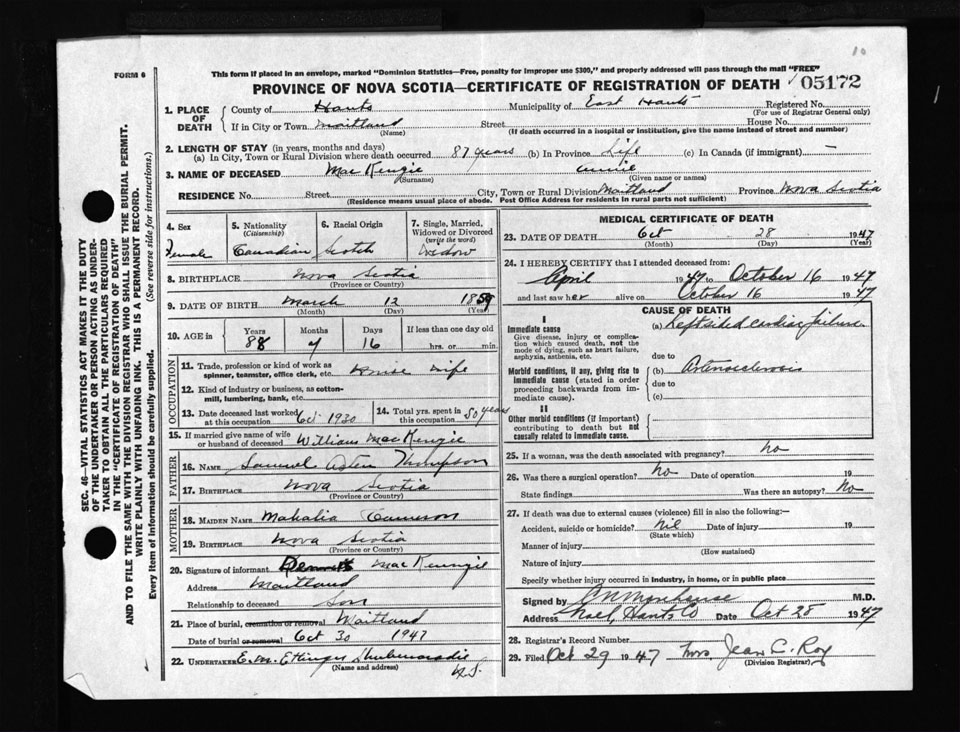 10
FORM 6
This form if placed in an envelope, marked "Dominion Statistics—Free, penalty for improper use $300," and properly addressed will pass through the mail "FREE"
PROVINCE OF NOVA SCOTIA—CERTIFICATE OF REGISTRATION OF DEATH 05172
1. PLACE OF DEATH
County of Hants Municipality of East Hants Registered No.
(For use of Registrar General only)
If in City or Town Maitland Street House No.
(Name) (If death occurred in a hospital or institution, give the name instead of street and number)
2. LENGTH OF STAY (in years, months and days)
(a) In City, Town or Rural Division where death occurred 87 years (b) In Province Life (c) In Canada (if immigrant) —
3. NAME OF DECEASED MacKenzie Annie
(Surname) (Given name or names)
RESIDENCE No. Street City, Town or Rural Division Maitland Province Nova Scotia
(Residence means usual place of abode. Post Office Address for residents in rural parts not sufficient)
4. Sex Female
5. Nationality (Citizenship) Canadian
6. Racial Origin Scotch
7. Single, Married, Widowed or Divorced (write the word) Widow
8. BIRTHPLACE Nova Scotia
(Province or Country)
9. DATE OF BIRTH March 12 1859
(Month) (Day) (Year)
10. AGE in Years Months Days If less than one day old
88 7 16 hrs. or min.
OCCUPATION
11. Trade, profession or kind of work as spinner, teamster, office clerk, etc. House wife
12. Kind of industry or business, as cotton-mill, lumbering, bank, etc.
13. Date deceased last worked at this occupation Oct 1930
14. Total yrs. spent in this occupation 50 years
15. If married give name of wife or husband of deceased William MacKenzie
FATHER
16. NAME Samuel Thompson
17. BIRTHPLACE Nova Scotia
(Province or Country)
MOTHER
18. MAIDEN NAME Mahalia Cameron
19. BIRTHPLACE Nova Scotia
(Province or Country)
20. Signature of informant MacKenzie
Address Maitland
Relationship to deceased Son
21. Place of burial, cremation or removal Maitland
Date of burial or removal Oct 30 1947
22. UNDERTAKER E.M. Ettinger Shubenacadie
(Name and address)
N.S.
MEDICAL CERTIFICATE OF DEATH
23. DATE OF DEATH Oct 28 1947
(Month) (Day) (Year)
24. I HEREBY CERTIFY that I attended deceased from:
April 1947 to October 16 1947
and last saw her alive on October 16 1947
CAUSE OF DEATH
I
Immediate cause
Give disease, injury or complication which caused death, not the mode of dying, such as heart failure, asphyxia, asthenia, etc.
(a) Left sided cardiac failure
due to
Morbid conditions, if any, giving rise to immediate cause (stated in order proceeding backwards from immediate cause).
(b) Arteriosclerosis
due to
(c)
II
Other morbid conditions (if important) contributing to death but not causally related to immediate cause.
25. If a woman, was the death associated with pregnancy? No
26. Was there a surgical operation? No Date of operation 19
State findings Was there an autopsy? No
27. If death was due to external causes (violence) fill in also the following:—
Accident, suicide or homicide? Nil Date of injury 19
(State which)
Manner of injury
(How sustained)
Nature of injury
Specify whether injury occurred in industry, in home, or in public place
Signed by M.D.
Address Noel, Hants Co Date Oct 28 1947
28. Registrar's Record Number
29. Filed Oct 29 1947 Mrs. Jean C. Roy
(Division Registrar)
SEC. 46—VITAL STATISTICS ACT MAKES IT THE DUTY
OF THE UNDERTAKER OR PERSON ACTING AS UNDER-
TAKER TO OBTAIN ALL THE PARTICULARS REQUIRED
IN THE "CERTIFICATE OF REGISTRATION OF DEATH"
AND TO FILE THE SAME WITH THE DIVISION REGISTRAR WHO SHALL ISSUE THE BURIAL PERMIT.
WRITE PLAINLY WITH UNFADING INK. THIS IS A PERMANENT RECORD.
Every item of information should be carefully supplied. (See reverse side for instructions.)